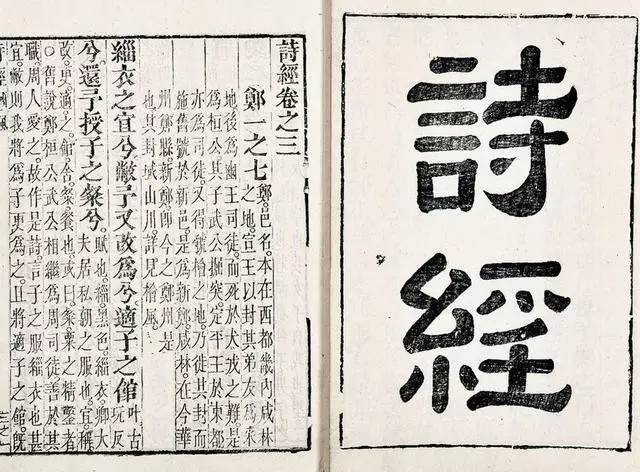 詩經
詩經卷之三
鄭一之七 鄭。邑名。本在西都畿內咸林
之地。宣王以封其弟友為采
地。後為幽王司徒。而死於犬戎之難。是
為桓公。其子武公掘突。定平王於東都。
亦為司徒。又得虢檜之地。乃徙其封。而
施舊號於新邑。是為新鄭。咸林。在今華
州鄭縣。新鄭。即今之鄭州是
也。其封域山川。詳見檜風。
緇衣之宜兮。敝予又改為兮。適子之館 叶古
玩反
兮。還予授子之粲兮。 賦也。緇。黑色。緇衣。卿大
夫居私朝之服也。宜。稱。
改。更。適。之。館。舍。粲。餐也。或曰。粲。粟之精鑿者
○舊說鄭桓公武公。相繼為周司徒。善於其
職。周人愛之。故作是詩。言子之服緇衣也甚
宜。敝則我將為子更為之。且將適子之館。既